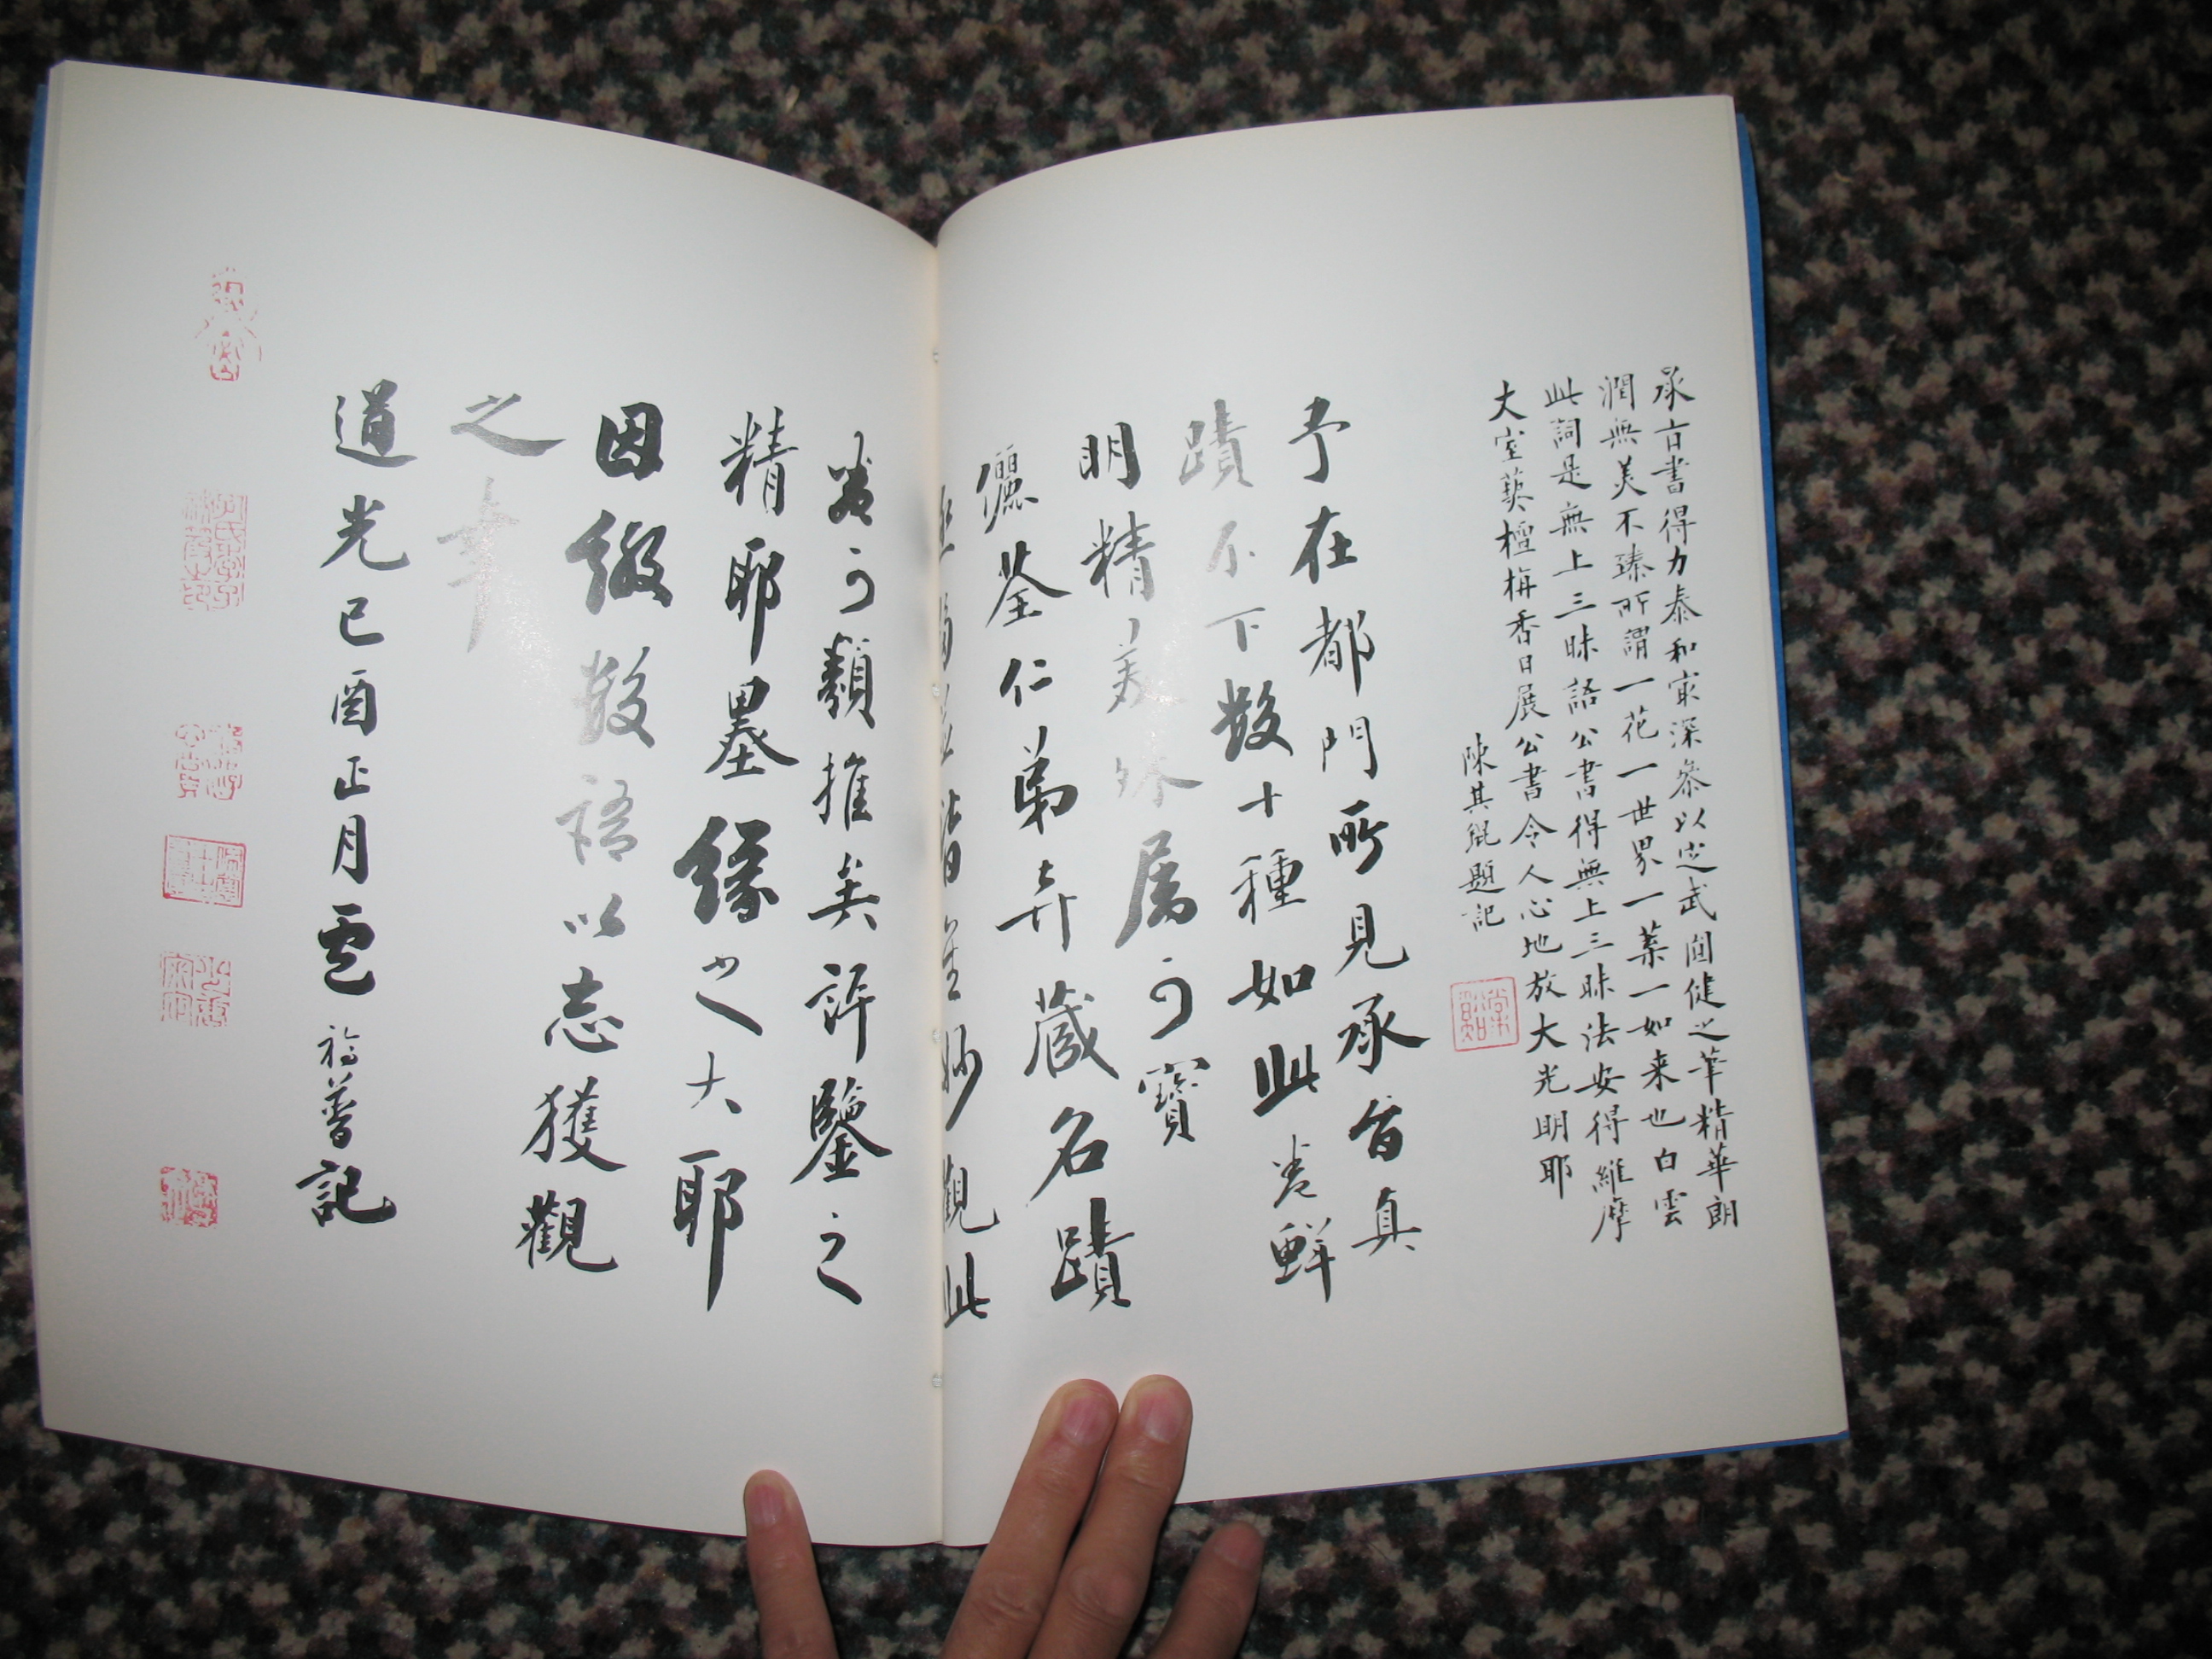 承旨書得力泰和寂深參以定武圓健之筆精華朗
潤無美不臻所謂一花一世界一葉一如来也白雲
此詞是無上三昧語公書得無上三昧法安得維摩
大室藝檀栴香日展公書令人心地放大光明耶
陳其錕題記
予在都門所見承旨真
蹟不下數十種如此卷鮮
明精美殊屬可寶
儷荃仁弟弆藏名蹟
妙觀此
卷可類推矣詐鑒之
精耶墨緣之大耶
因綴數語以志獲觀
之幸
道光己酉正月 福普記